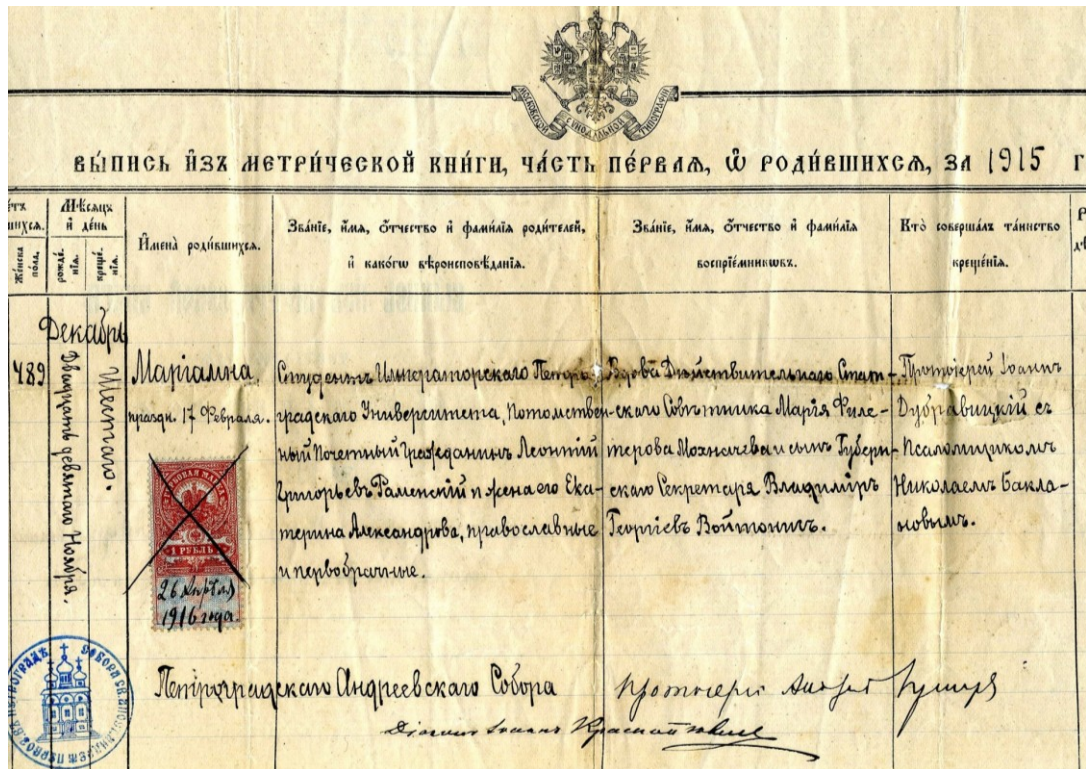 МОСКОВСКОЙ СѴНОДАЛЬНОЙ ТИПОГРАФІИ
ВЫ́ПИСЬ И҆ЗЪ МЕТРИ́ЧЕСКОЙ КНИ́ГИ, ЧА́СТЬ ПЕ́РВАѦ, Ѽ РОДИ́ВШИХСѦ, ЗА 1915 Г
Же́нска по́ла.
Мѣ́сѧцъ и҆ де́нь
рожде́нїѧ.
креще́нїѧ.
И҆мена̀ роди́вшихсѧ.
Зва́нїе, и҆́мѧ, ѻ҆́тчество и҆ фамі́лїѧ роди́телей,
и҆ како́гѡ вѣроисповѣ́данїѧ.
Зва́нїе, и҆́мѧ, ѻ҆́тчество и҆ фамі́лїѧ
воспрїе́мникѡвъ.
Кто̀ соверша́лъ та́инство
креще́нїѧ.
Декабрь
489
Двадцать девятаго Ноября.
Шестаго.
Маріамна,
праздн. 17 Февраля.
Студентъ Императорскаго Петро-
градскаго Университета, Потомствен-
ный Почетный Гражданинъ Леонтій
Григорьевъ Раменскій и жена его Ека-
терина Александрова, православные
и первобрачные.
Вдова Дѣйствительнаго Стат-
скаго Совѣтника Марія Филе-
терова Мохначева и сынъ Губерн-
скаго Секретаря Владиміръ
Георгіевъ Войтоничъ.
Протоіерей Іоаннъ
Дубравицкій съ
Псаломщикомъ
Николаемъ Бакла-
новымъ.
1 РУБЛЬ
26 Апрѣля
1916 года.
Петроградскаго Андреевскаго Собора
Протоіерей Андрей
Діаконъ Іоаннъ